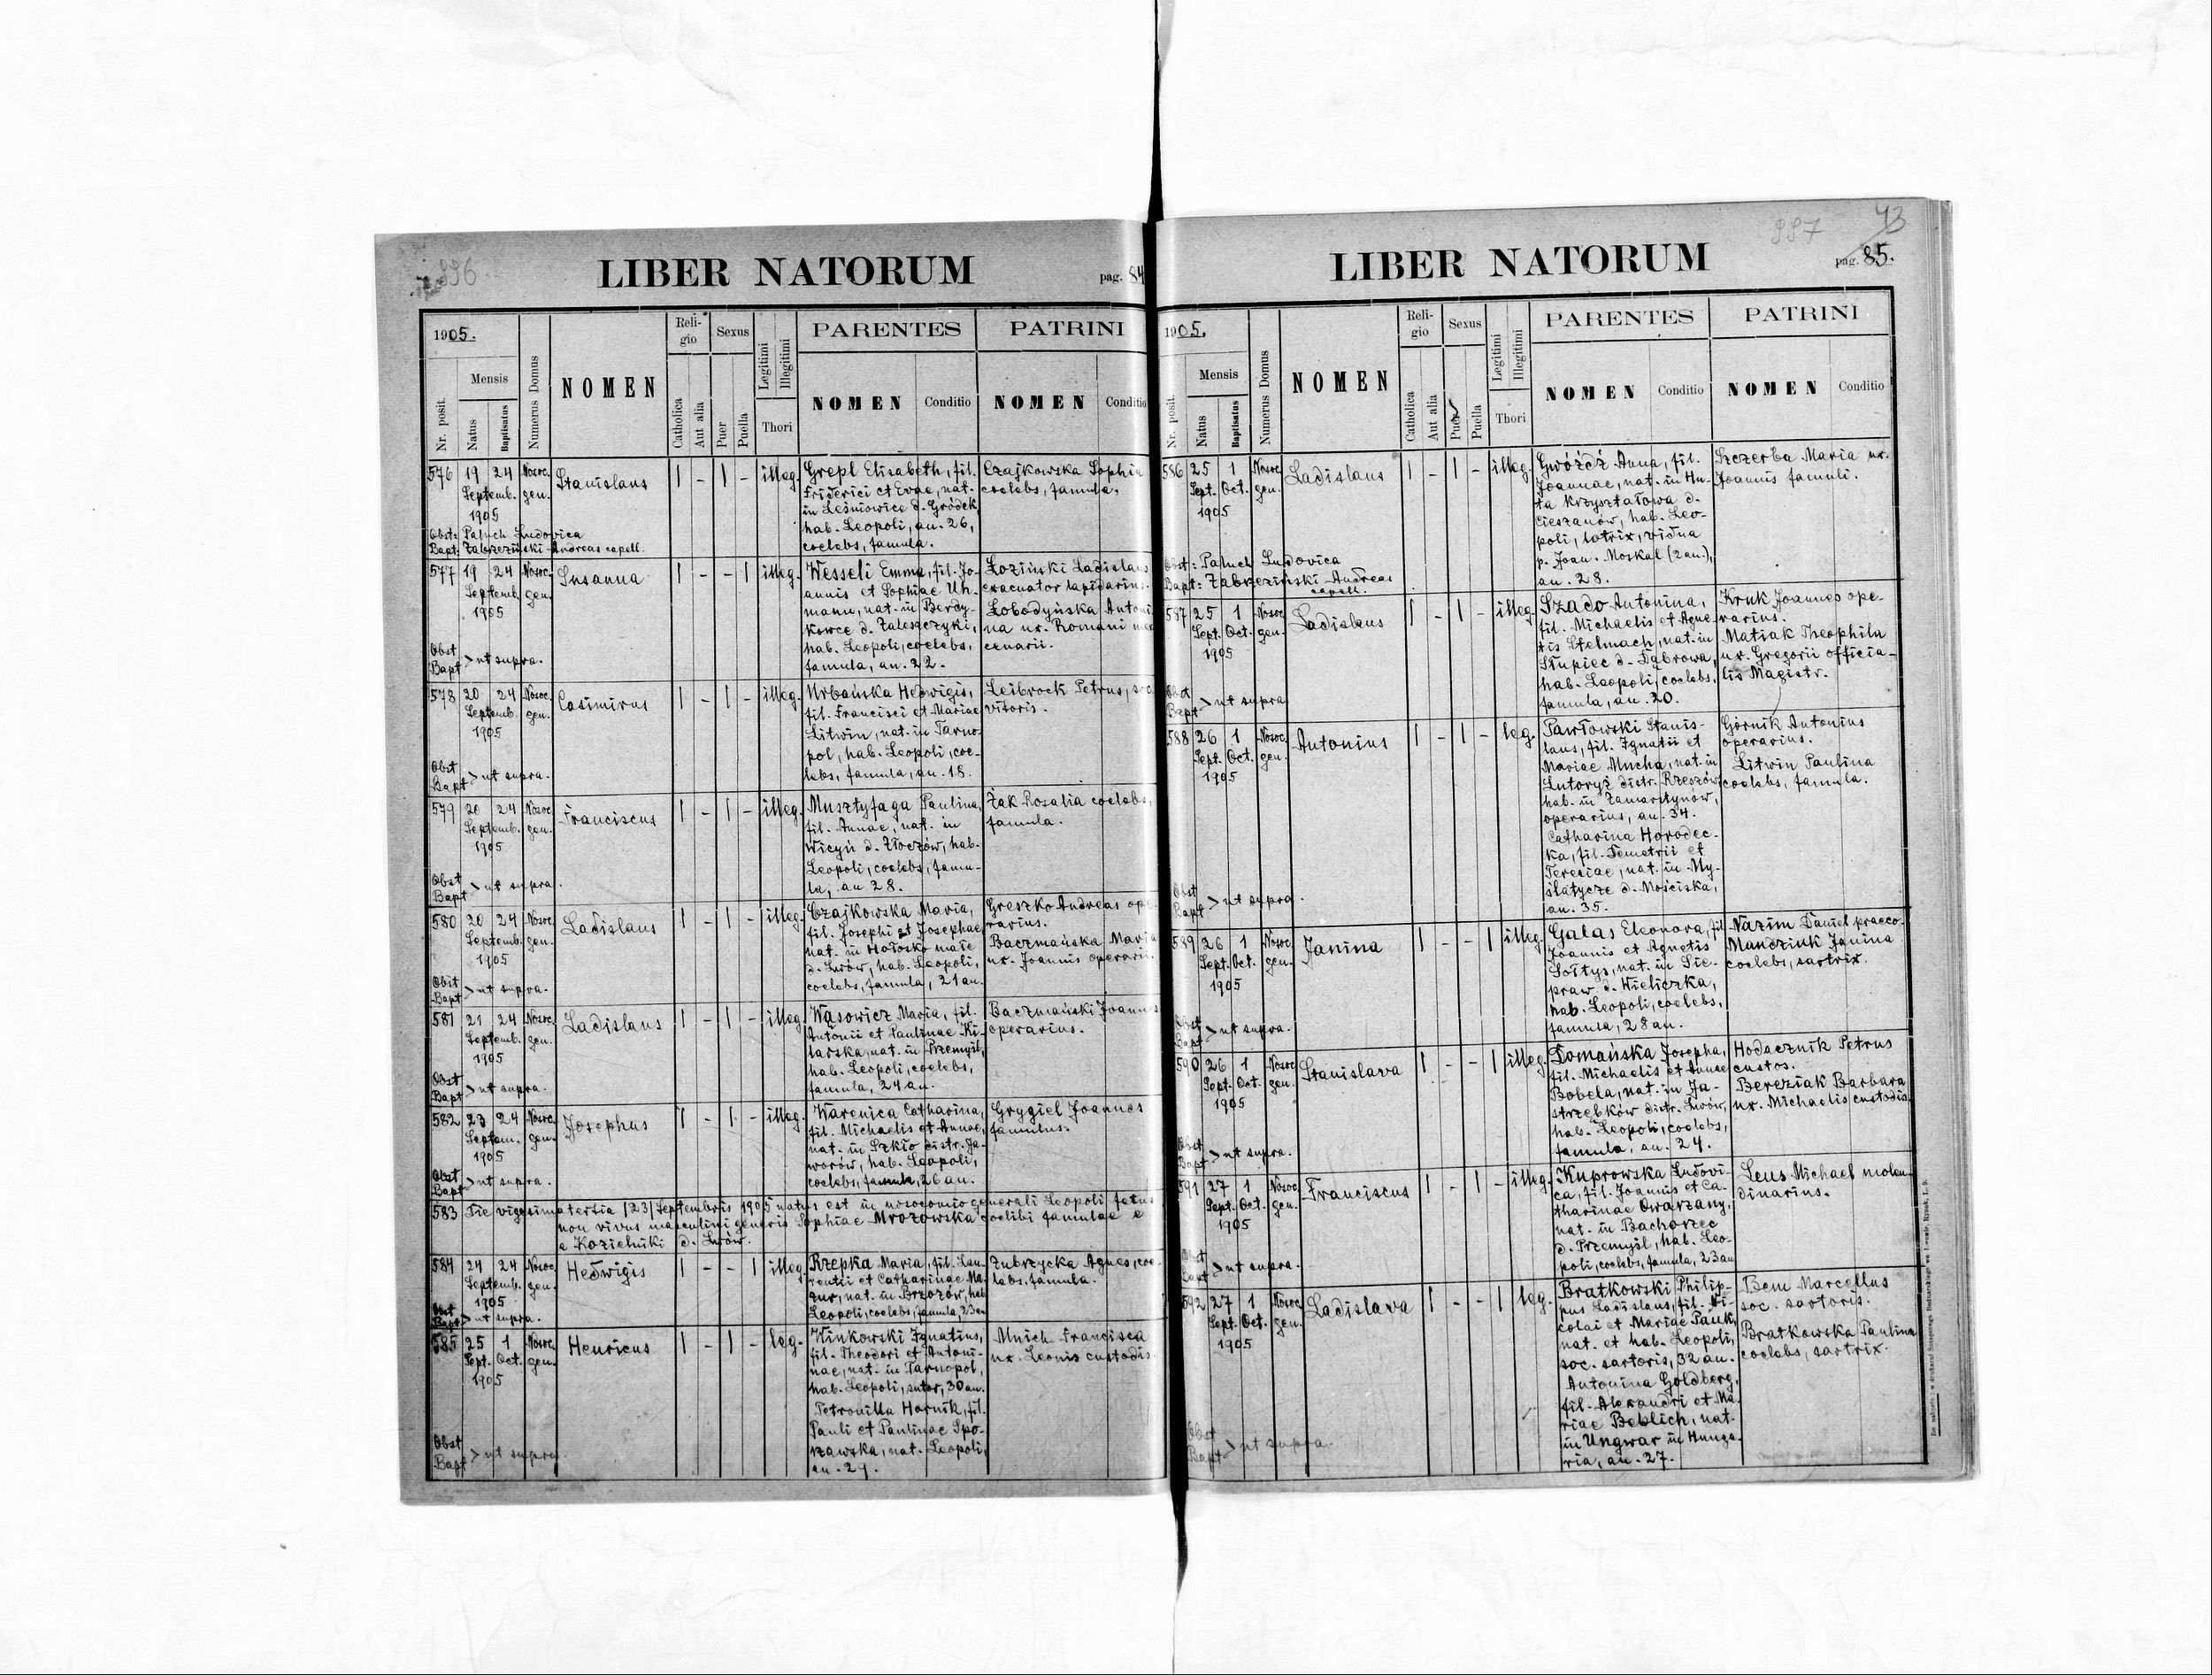 996
LIBER NATORUM
pag. 84
1905.
Nr. posit.
Mensis
Natus
Baptisatus
Numerus Domus
NOMEN
Religio
Catholica
Aut alia
Sexus
Puer
Puella
Legitimi
Illegitimi
Thori
PARENTES
NOMEN
Conditio
PATRINI
NOMEN
Conditio
576 19 24 Nosoc. gen. Septemb. 1905
Stanislaus
1 - 1 - illeg.
Grepl Elisabeth, fil.
Friderici et Evae, nat.
in Leśniowice d. Gródek,
hab. Leopoli, an. 26,
coelebs, famula.
Czajkowska Sophia
coelebs, famula.
Obst: Paluch Ludovica
Bapt: Zabrzeziński Andreas capell.
577 19 24 Nosoc. gen. Septemb. 1905
Susanna
1 - - 1 illeg.
Wesseli Emma, fil. Jo-
annis et Sophiae Uh-
mann, nat. in Berdy-
kowce d. Zaleszczyki,
hab. Leopoli, coelebs,
famula, an. 22.
Łoziński Ladislaus
evacuator lapidarius.
Łobodyńska Antoni
na ux. Romani
cenarii.
Obst Bapt > ut supra.
578 20 24 Nosoc. gen. Septemb. 1905
Casimirus
1 - 1 - illeg.
Urbańska Hedwigis,
fil. Francisci et Mariae
Litwin, nat. in Tarno-
pol, hab. Leopoli, coe-
lebs, famula, an. 18.
Leibrock Petrus, soc
vitoris.
Obst Bapt > ut supra.
579 20 24 Nosoc. gen. Septemb. 1905
Franciscus
1 - 1 - illeg.
Musztyfaga Paulina,
fil. Annae, nat. in
Wicyń d. Złoczów, hab.
Leopoli, coelebs, famu-
la, an 28.
Żak Rosalia coelebs,
famula.
Obst Bapt > ut supra.
580 20 24 Nosoc. gen. Septemb. 1905
Ladislaus
1 - 1 - illeg.
Czajkowska Maria,
fil. Josephi et Josephae,
nat. in Hołosko małe
d. Lwów, hab. Leopoli,
coelebs, famula, 21 an.
Greszko Andreas ope
rarius.
Baczmańska Maria
ux. Joannis operarii.
Obst Bapt > ut supra.
581 21 24 Nosoc. gen. Septemb. 1905
Ladislaus
1 - 1 - illeg.
Wąsowicz Maria, fil.
Antonii et Paulinae Ki-
larska, nat. in Przemyśl,
hab. Leopoli, coelebs,
famula, 24 an.
Baczmański Joannes
operarius.
Obst Bapt > ut supra.
582 23 24 Nosoc. gen. Septem. 1905
Josephus
1 - 1 - illeg.
Warenica Catharina,
fil. Michaelis et Annae,
nat. in Szkło distr. Ja-
worów, hab. Leopoli,
coelebs, famula, 26 an.
Grygiel Joannes
famulus.
Obst Bapt > ut supra.
583 Die vigesima tertia /23/ Septembris 1905 natus est in nosocomio generali Leopoli fetus
non vivus masculini generis Sophiae Mrozowska coelibi famulae e
e Kozielniki d. Lwów.
584 24 24 Nosoc. gen. Septemb. 1905
Hedwigis
1 - - 1 illeg.
Rzepka Maria, fil. Lau-
rentii et Catharinae Ma-
zur, nat. in Brzozów, hab.
Leopoli, coelebs, famula, 23 an
Zubrzycka Agnes, coe
lebs, famula.
Obst Bapt > ut supra.
585 25 1 Nosoc. gen. Sept. Oct. 1905
Henricus
1 - 1 - leg.
Winkowski Ignatius,
fil. Theodori et Antoni-
nae, nat. in Tarnopol,
hab. Leopoli, sutor, 30 an.
Petronilla Hornik, fil.
Pauli et Paulinae Spo-
rzawska, nat. Leopoli,
an. 29.
Mnich Francisca
ux. Leonis custodis.
Obst Bapt > ut supra.
997
43
LIBER NATORUM
pag. 85.
1905.
Nr. posit.
Mensis
Natus
Baptisatus
Numerus Domus
NOMEN
Religio
Catholica
Aut alia
Sexus
Puer
Puella
Legitimi
Illegitimi
Thori
PARENTES
NOMEN
Conditio
PATRINI
NOMEN
Conditio
586 25 1 Nosoc. gen. Sept. Oct. 1905
Ladislaus
1 - 1 - illeg.
Gwóźdź Anna, fil.
Joannae, nat. in Hu-
ta Krzyształowa d.
Cieszanów, hab. Leo-
poli, lotrix, vidua
p. Joan. Moskal (2 an.),
an. 28.
Szczerba Maria ux.
Joannis famuli.
Obst: Paluch Ludovica
Bapt: Zabrzeziński Andreas
capell.
587 25 1 Nosoc. gen. Sept. Oct. 1905
Ladislaus
1 - 1 - illeg.
Szado Antonina,
fil. Michaelis et Agne-
tis Stelmach, nat. in
Słupiec d. Dąbrowa,
hab. Leopoli, coelebs,
famula, an. 20.
Kruk Joannes ope-
rarius.
Matiak Theophila
ux. Gregorii officia-
lis Magistr.
Obst Bapt > ut supra
588 26 1 Nosoc. gen. Sept. Oct. 1905
Antonius
1 - 1 - leg.
Pawłowski Stanis-
laus, fil. Ignatii et
Mariae Mucha, nat. in
Lutoryż distr. Rzeszów
hab. in Zamarstynów,
operarius, an. 34.
Catharina Horodec-
ka, fil. Demetrii et
Teresiae, nat. in My-
slatycze d. Mościska,
an. 35.
Górnik Antonius
operarius.
Litwin Paulina
coelebs, famula.
Obst Bapt > ut supra.
589 26 1 Nosoc. gen. Sept. Oct. 1905
Janina
1 - - 1 illeg.
Galas Eleonora, fil
Joannis et Agnetis
Sołtys, nat. in Sie-
praw d. Wieliczka,
hab. Leopoli, coelebs,
famula, 28 an.
Nazim Daniel praeco.
Manczink Janina
coelebs, sartrix.
Obst Bapt > ut supra.
590 26 1 Nosoc. gen. Sept. Oct. 1905
Stanislava
1 - - 1 illeg.
Domańska Josepha,
fil. Michaelis et Annae
Bobela, nat. in Ja-
strzębków distr. Lwów,
hab. Leopoli, coelebs,
famula, an. 24.
Hodacznik Petrus
custos.
Bereziak Barbara
ux. Michaelis custodis.
Obst Bapt > ut supra.
591 27 1 Nosoc. gen. Sept. Oct. 1905
Franciscus
1 - 1 - illeg.
Kuprowska Ludovi-
ca, fil. Joannis et Ca-
tharinae Owarzany,
nat. in Bachorzec
d. Przemyśl, hab. Leo-
poli, coelebs, famula, 23 an
Leus Michael molen-
dinarius.
Obst Bapt > ut supra.
592 27 1 Nosoc. gen. Sept. Oct. 1905
Ladislava
1 - - 1 leg.
Bratkowski Philip-
pus Ladislaus, fil. Ni-
colai et Mariae Pauk,
nat. et hab. Leopoli,
soc. sartoris, 32 an.
Antonina Goldberg,
fil. Alexandri et Ma-
riae Beblich, nat.
in Ungwar in Hunga-
ria, an. 27.
Bem Marcellus
soc. sartoris.
Bratkowska Paulina
coelebs, sartrix.
Obst Bapt > ut supra.